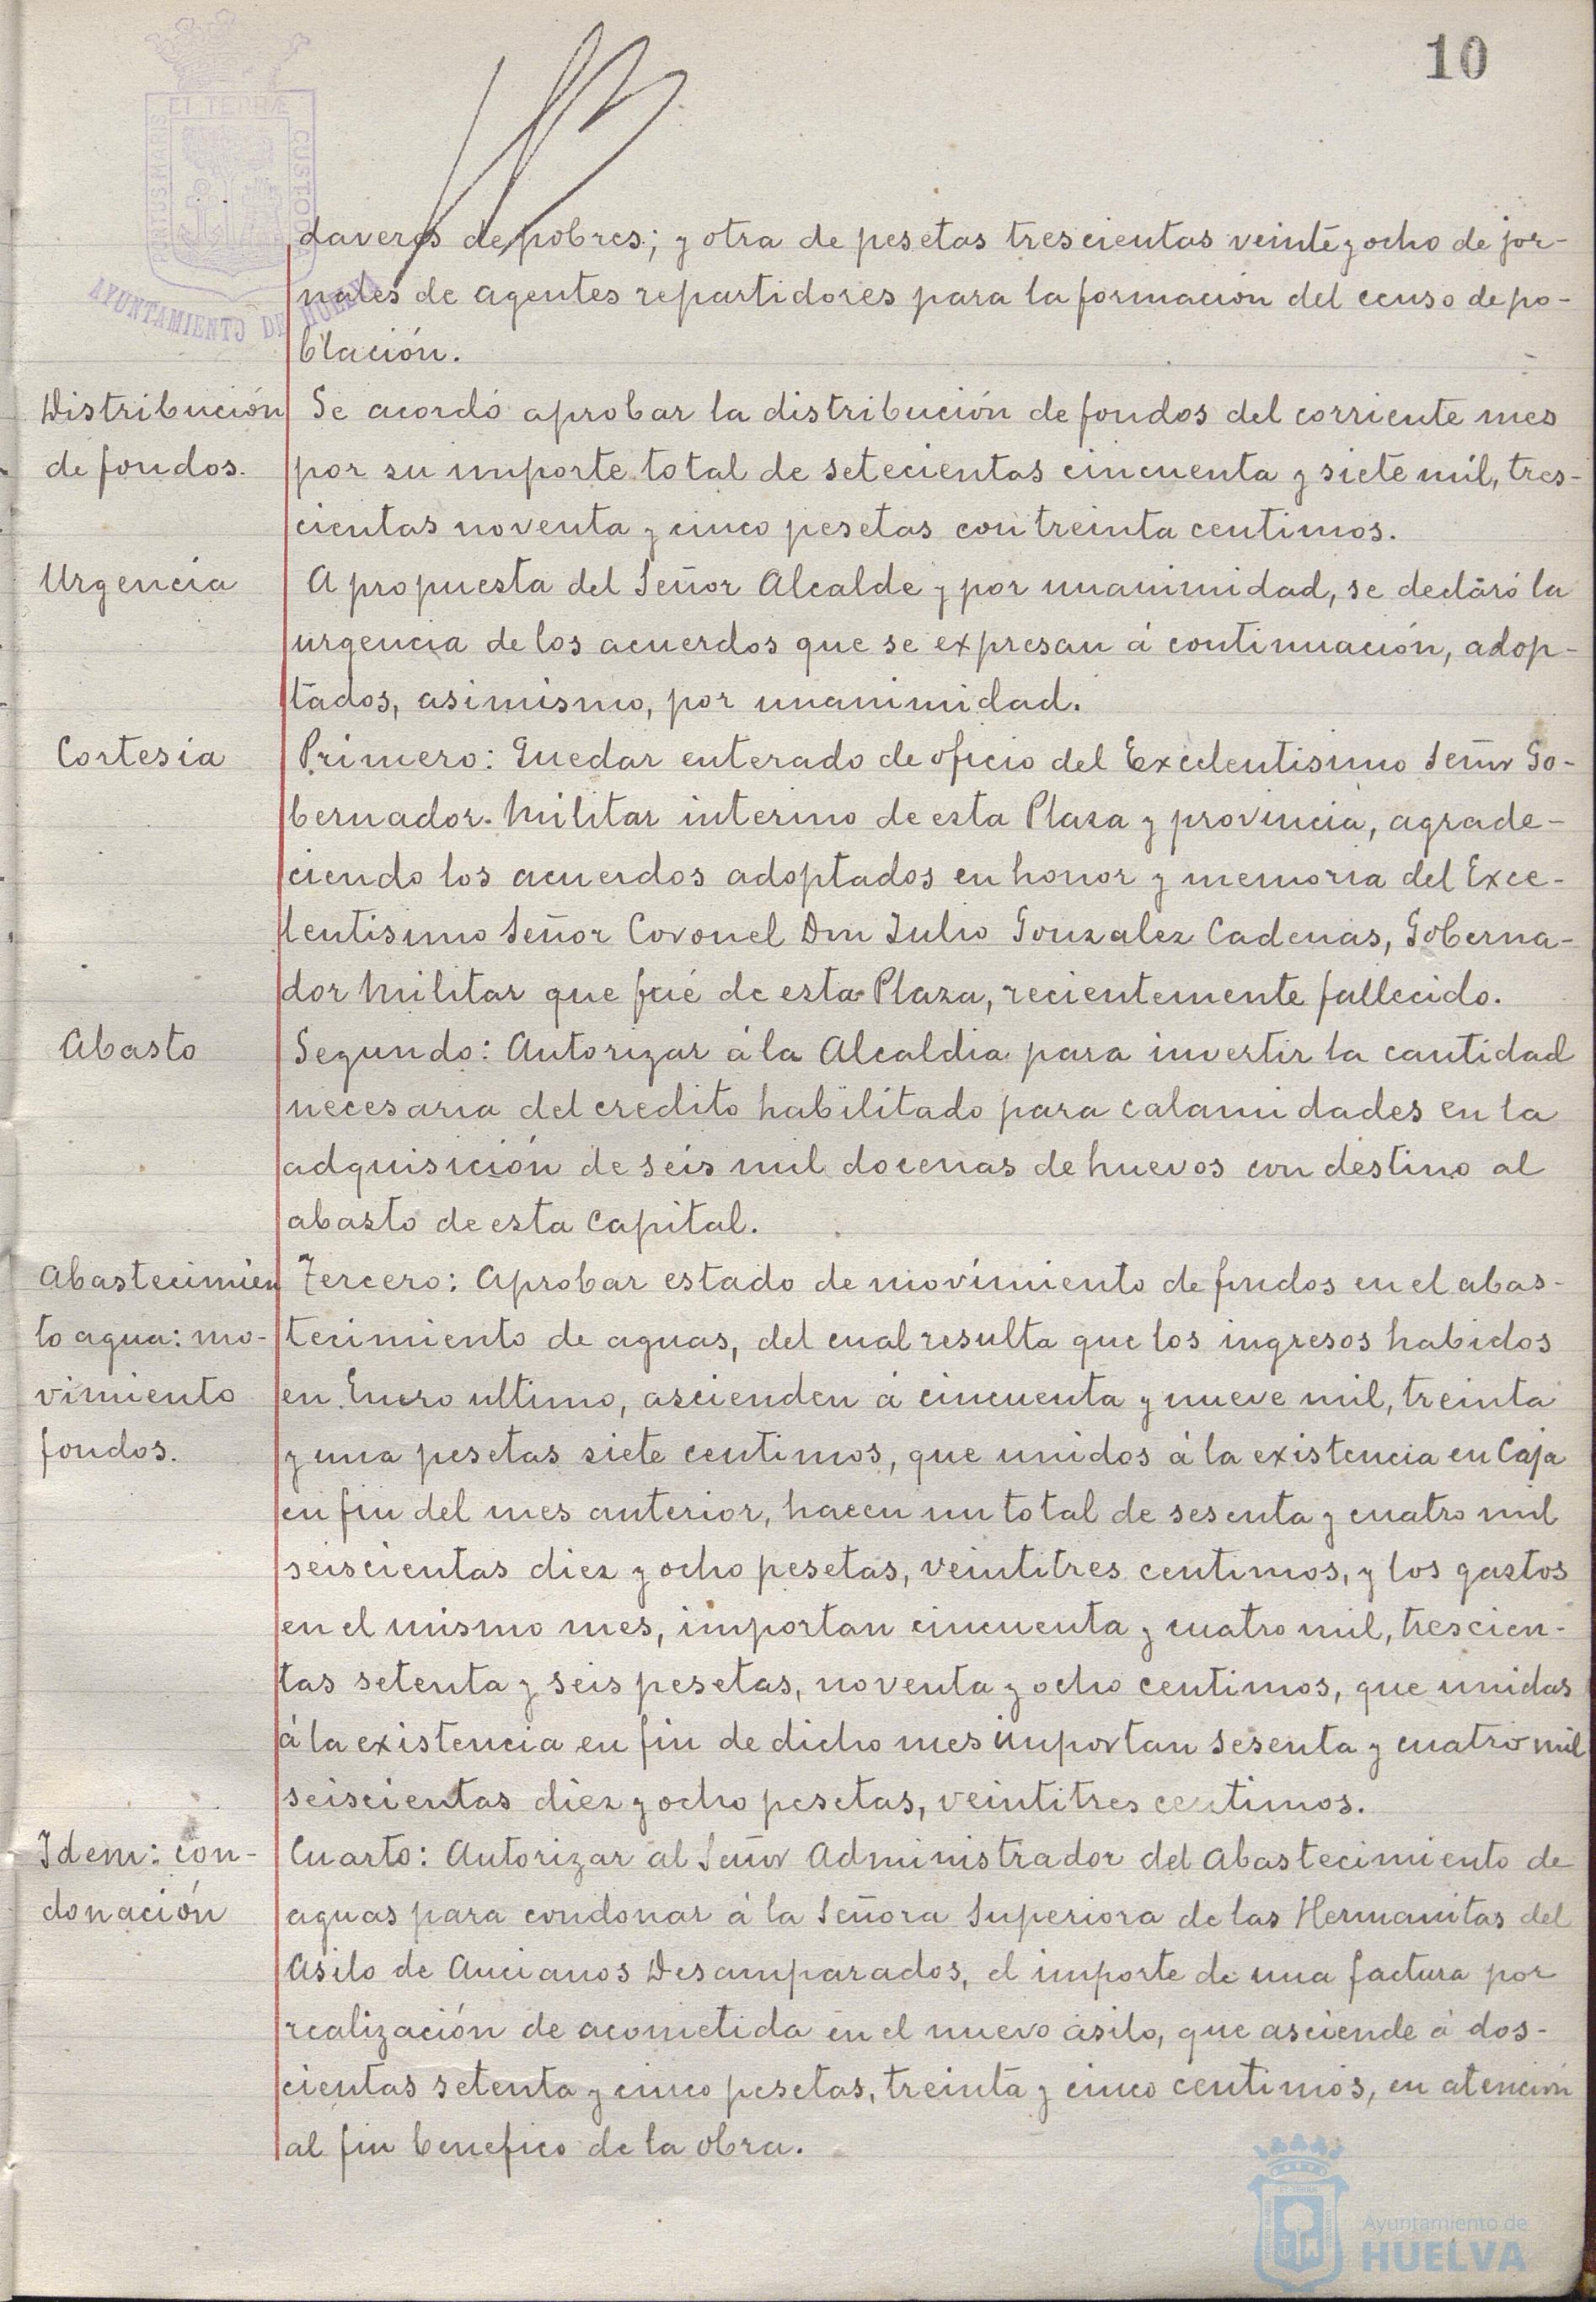 10
PORTUS MARIS
ET TERRÆ
CUSTODIA
AYUNTAMIENTO DE HUELVA
daveres de pobres; y otra de pesetas trescientas veinte y ocho de jor-
nales de agentes repartidores para la formación del censo de po-
blación.
Distribución
de fondos.
Se acordó aprobar la distribución de fondos del corriente mes
por su importe total de setecientas cincuenta y siete mil, tres-
cientas noventa y cinco pesetas con treinta centimos.
Urgencia
A propuesta del Señor Alcalde y por unanimidad, se declaró la
urgencia de los acuerdos que se expresan á continuación, adop-
tados, asimismo, por unanimidad.
Cortesia
Primero: Quedar enterado de oficio del Excelentisimo Señor Go-
bernador-Militar interino de esta Plaza y provincia, agrade-
ciendo los acuerdos adoptados en honor y memoria del Exce-
lentisimo Señor Coronel Don Julio Gonzalez Cadenas, Goberna-
dor Militar que fué de esta Plaza, recientemente fallecido.
Abasto
Segundo: Autorizar á la Alcaldia para invertir la cantidad
necesaria del credito habilitado para calamidades en la
adquisición de seis mil docenas de huevos con destino al
abasto de esta Capital.
Abastecimien
to agua: mo-
vimiento
fondos.
Tercero: Aprobar estado de movimiento de fondos en el abas-
tecimiento de aguas, del cual resulta que los ingresos habidos
en Enero ultimo, ascienden á cincuenta y nueve mil, treinta
y una pesetas siete centimos, que unidos á la existencia en Caja
en fin del mes anterior, hacen un total de sesenta y cuatro mil
seiscientas diez y ocho pesetas, veintitres centimos, y los gastos
en el mismo mes, importan cincuenta y cuatro mil, trescien-
tas setenta y seis pesetas, noventa y ocho centimos, que unidas
á la existencia en fin de dicho mes importan sesenta y cuatro mil
seiscientas diez y ocho pesetas, veintitres centimos.
Idem: con-
donación
Cuarto: Autorizar al Señor Administrador del Abastecimiento de
aguas para condonar á la Señora Superiora de las Hermanitas del
Asilo de Ancianos Desamparados, el importe de una factura por
realización de acometida en el nuevo asilo, que asciende á dos-
cientas setenta y cinco pesetas, treinta y cinco centimos, en atención
al fin benefico de la obra.
Ayuntamiento de
HUELVA